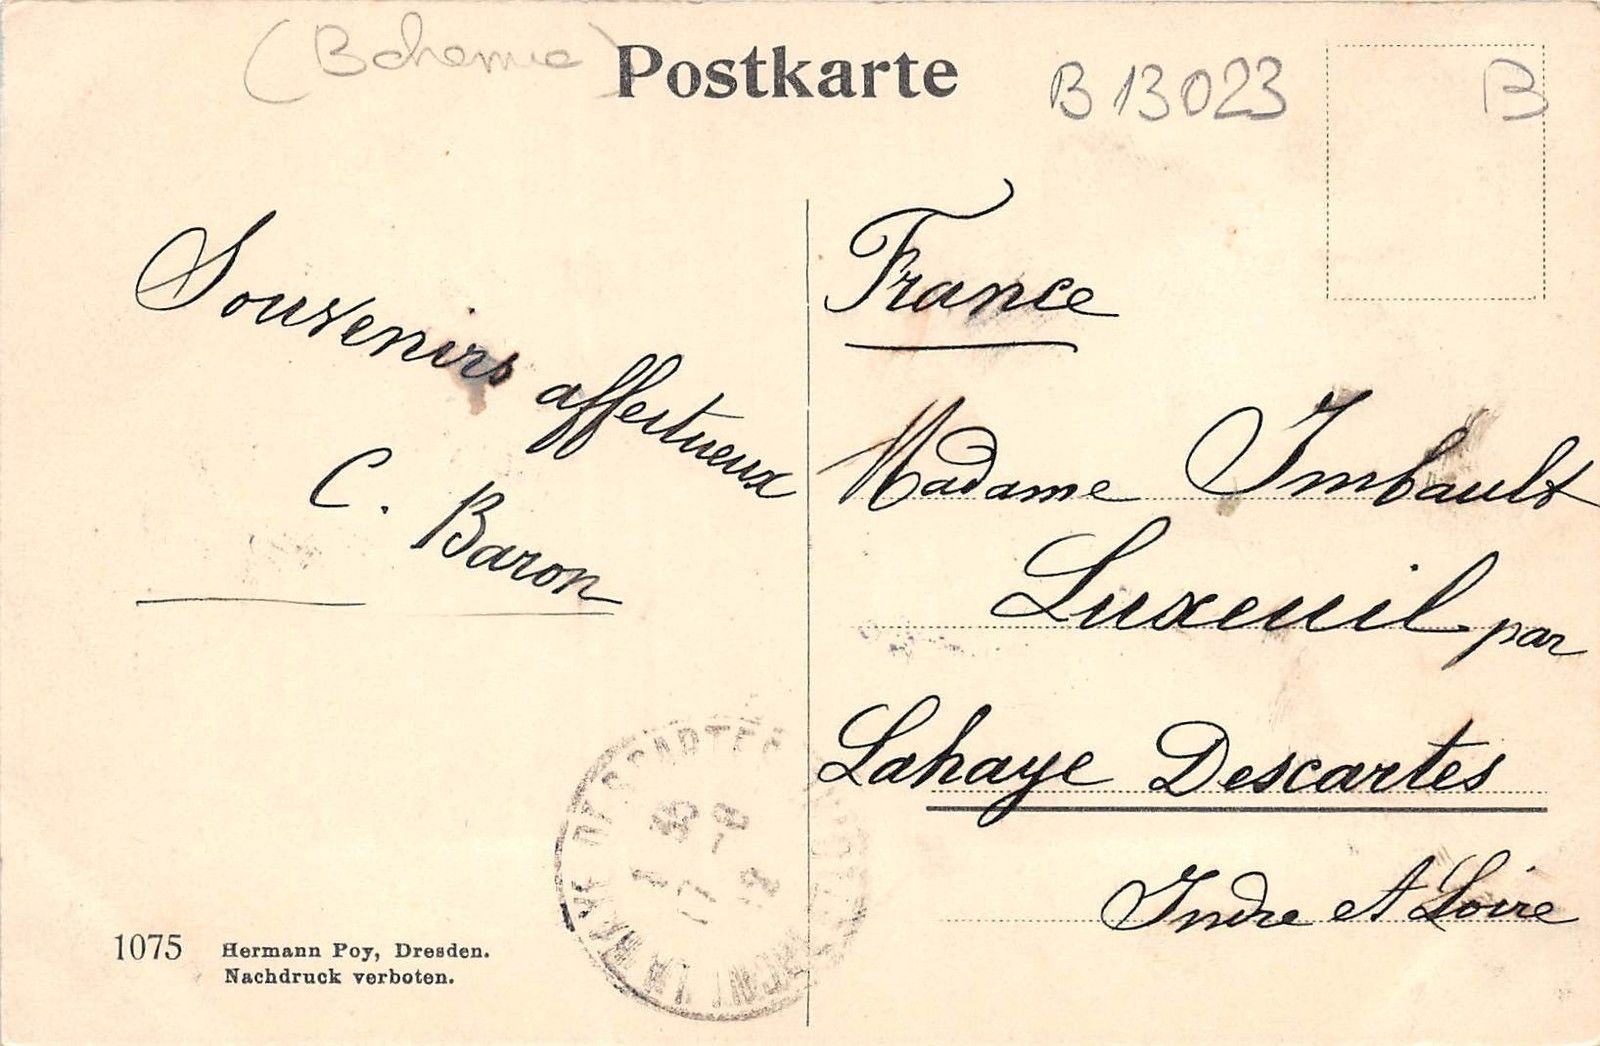 (Bohemie)
Postkarte
B 13023
B
Souvenirs affectueux
C. Baron
France
Madame Imbault
Luxeuil par
Lahaye Descartes
Indre et Loire
1075 Hermann Poy, Dresden.
Nachdruck verboten.
LA HAYE DESCARTES